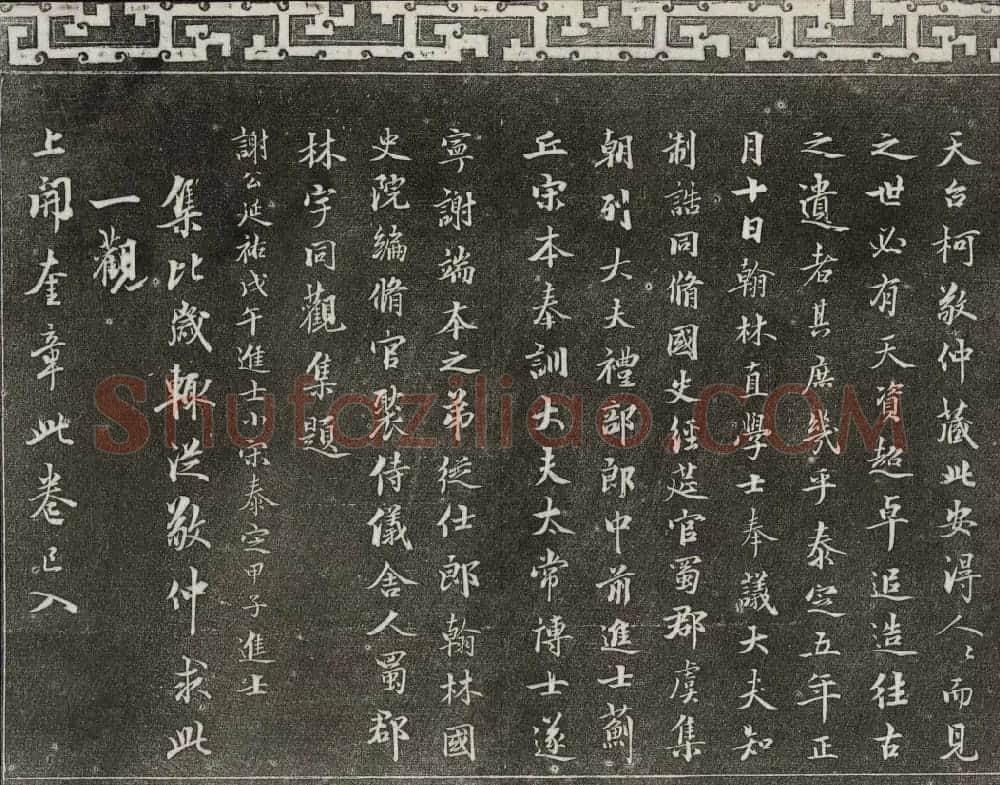 天台柯敬仲藏此安得人々而見
之世必有天資超卓追造往古
之遺者其庶幾乎泰定五年正
月十日翰林直學士奉議大夫知
制誥同脩國史經筵官蜀郡虞集
朝列大夫禮部郎中前進士薊
丘宋本奉訓大夫太常博士遂
寧謝端本之弟從仕郎翰林國
史院編脩官褧侍儀舍人蜀郡
林宇同觀集題
謝公延祐戊午進士小宋泰定甲子進士
集比歲輙從敬仲求此
一觀
上開奎章此卷已入
Shufaziliao.COM